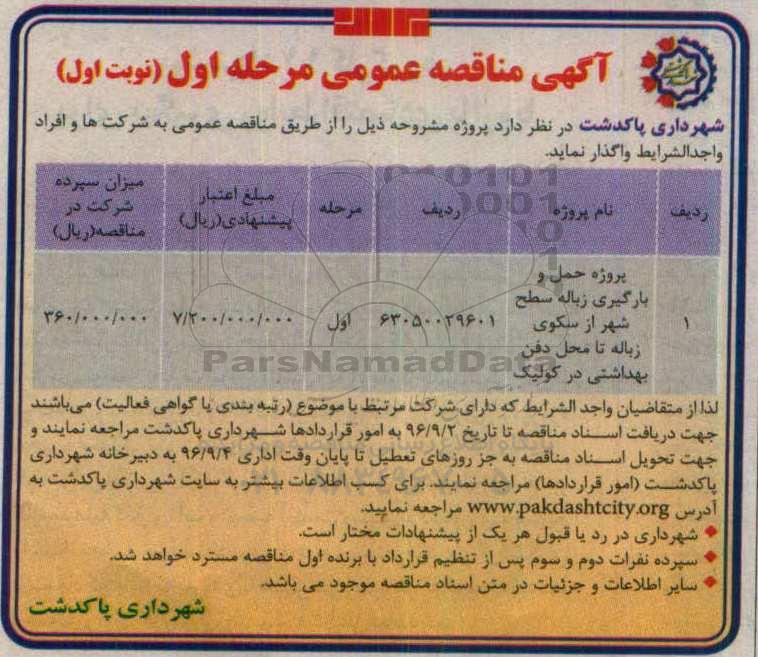 آگهی مناقصه عمومی مرحله اول (نوبت اول)
شهرداری پاکدشت در نظر دارد پروژه مشروحه ذیل را از طریق مناقصه عمومی به شرکت ها و افراد
واجدالشرایط واگذار نماید.
ردیف
نام پروژه
ردیف
مرحله
مبلغ اعتبار
پیشنهادی(ریال)
میزان سپرده
شرکت در
مناقصه(ریال)
۱
پروژه حمل و
بارگیری زباله سطح
شهر از سکوی
زباله تا محل دفن
بهداشتی در کولیک
۶۳۰۵۰۰۲۹۶۰۱
اول
۷/۲۰۰/۰۰۰/۰۰۰
۳۶۰/۰۰۰/۰۰۰
ParsNamadData
لذا از متقاضیان واجد الشرایط که دارای شرکت مرتبط با موضوع (رتبه بندی یا گواهی فعالیت) می‌باشند
جهت دریافت اسناد مناقصه تا تاریخ ۹۶/۹/۲ به امور قراردادها شهرداری پاکدشت مراجعه نمایند و
جهت تحویل اسناد مناقصه به جز روزهای تعطیل تا پایان وقت اداری ۹۶/۹/۴ به دبیرخانه شهرداری
پاکدشت (امور قراردادها) مراجعه نمایند. برای کسب اطلاعات بیشتر به سایت شهرداری پاکدشت به
آدرس www.pakdashtcity.org مراجعه نمایید.
شهرداری در رد یا قبول هر یک از پیشنهادات مختار است.
سپرده نفرات دوم و سوم پس از تنظیم قرارداد با برنده اول مناقصه مسترد خواهد شد.
سایر اطلاعات و جزئیات در متن اسناد مناقصه موجود می باشد.
شهرداری پاکدشت